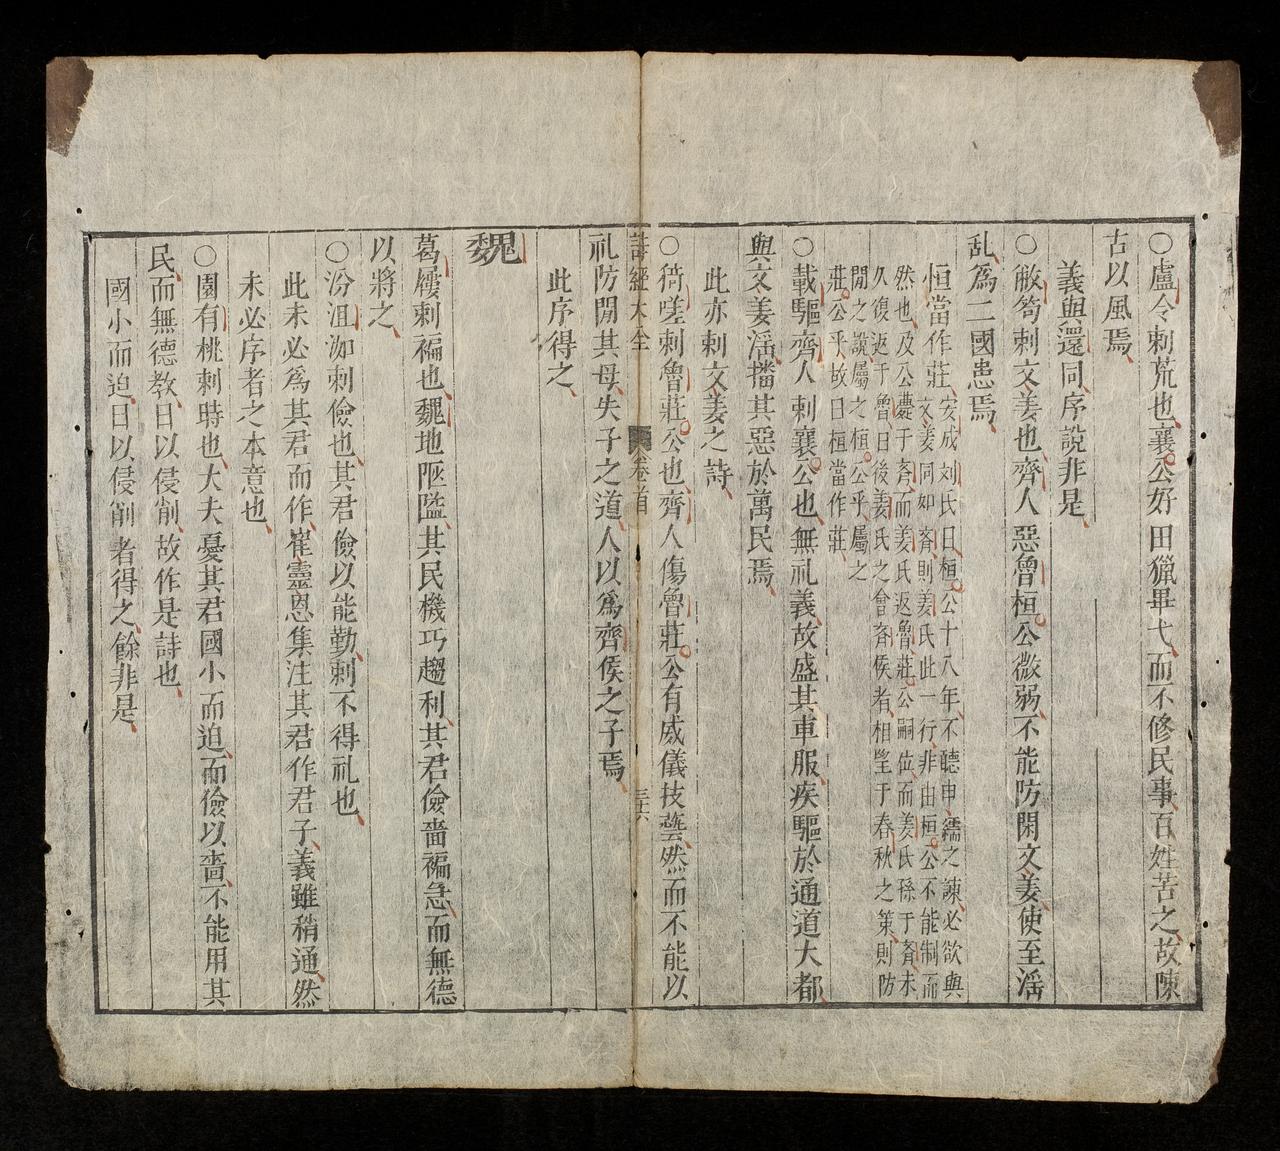 ○盧令刺荒也襄公好田獵畢弋而不修民事百姓苦之故陳
古以風焉
義與還同序說非是
○敝笱刺文姜也齊人惡魯桓公微弱不能防閑文姜使至滛
乱為二國患焉
恒當作莊安成刘氏曰桓公十八年不聽申繻之諫必欲與
文姜同如齐則姜氏此一行非由桓公不能制而
然也及公薨于斉而姜氏返魯莊公嗣位而姜氏孫于斉未
久復返于魯日後姜氏之會斉侯者相望于春秋之策則防
閑之說屬之桓公乎屬之
莊公乎故曰桓當作莊
○載驅齊人刺襄公也無礼義故盛其車服疾驅於通道大都
與文姜滛播其惡於萬民焉
此亦刺文姜之詩
○猗嗟刺魯莊公也齊人傷魯莊公有威儀技藝然而不能以
詩經大全 卷首 三六
礼防閑其母失子之道人以為齊侯之子焉
此序得之
魏
葛屨刺褊也魏地陿隘其民機巧趨利其君儉嗇褊急而無德
以將之
○汾沮洳刺儉也其君儉以能勤刺不得礼也
此未必為其君而作崔靈恩集注其君作君子義雖稍通然
未必序者之本意也
○園有桃刺時也大夫憂其君國小而迫而儉以嗇不能用其
民而無德教日以侵削故作是詩也
國小而迫日以侵削者得之餘非是